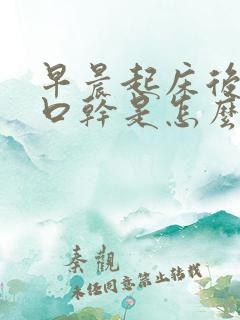 早晨起床後
口幹是怎麼
秦觀
未經同意禁止轉載